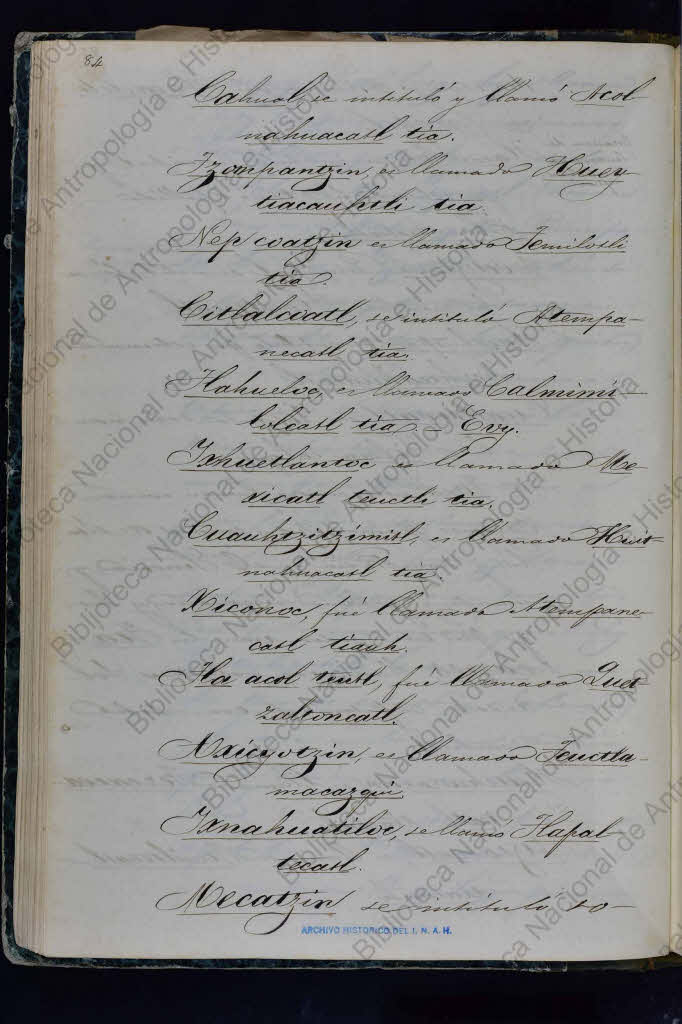 84
Cahual se intituló y llamó Acol
nahuacatl tia.
Tzompantzin, es llamado Huey
tiacauhtli tia.
Nep coatzin es llamado Temilotli
tia.
Citlalcoatl, se intituló Atempa-
necatl tia.
Tlahueloc, es llamado Calmimi-
lolcatl tia. = Evy.
Ixhuetlantoc es llamado Me-
xicatl teuctli tia.
Cuauhtzitzimitl, es llamado Huit-
nahuacatl tia.
Xiconoc, fué llamado Atempane-
catl tiauh.
Tla acol teutl, fué llamado Quet
zaltoncatl.
Axicyotzin, es llamado Teuctla-
macazqui.
Ixnahuatiloc, se llamó Tlapal-
tecatl.
Mecatzin se intituló to-
ARCHIVO HISTORICO DEL I. N. A. H.
Biblioteca Nacional de Antropología e Historia